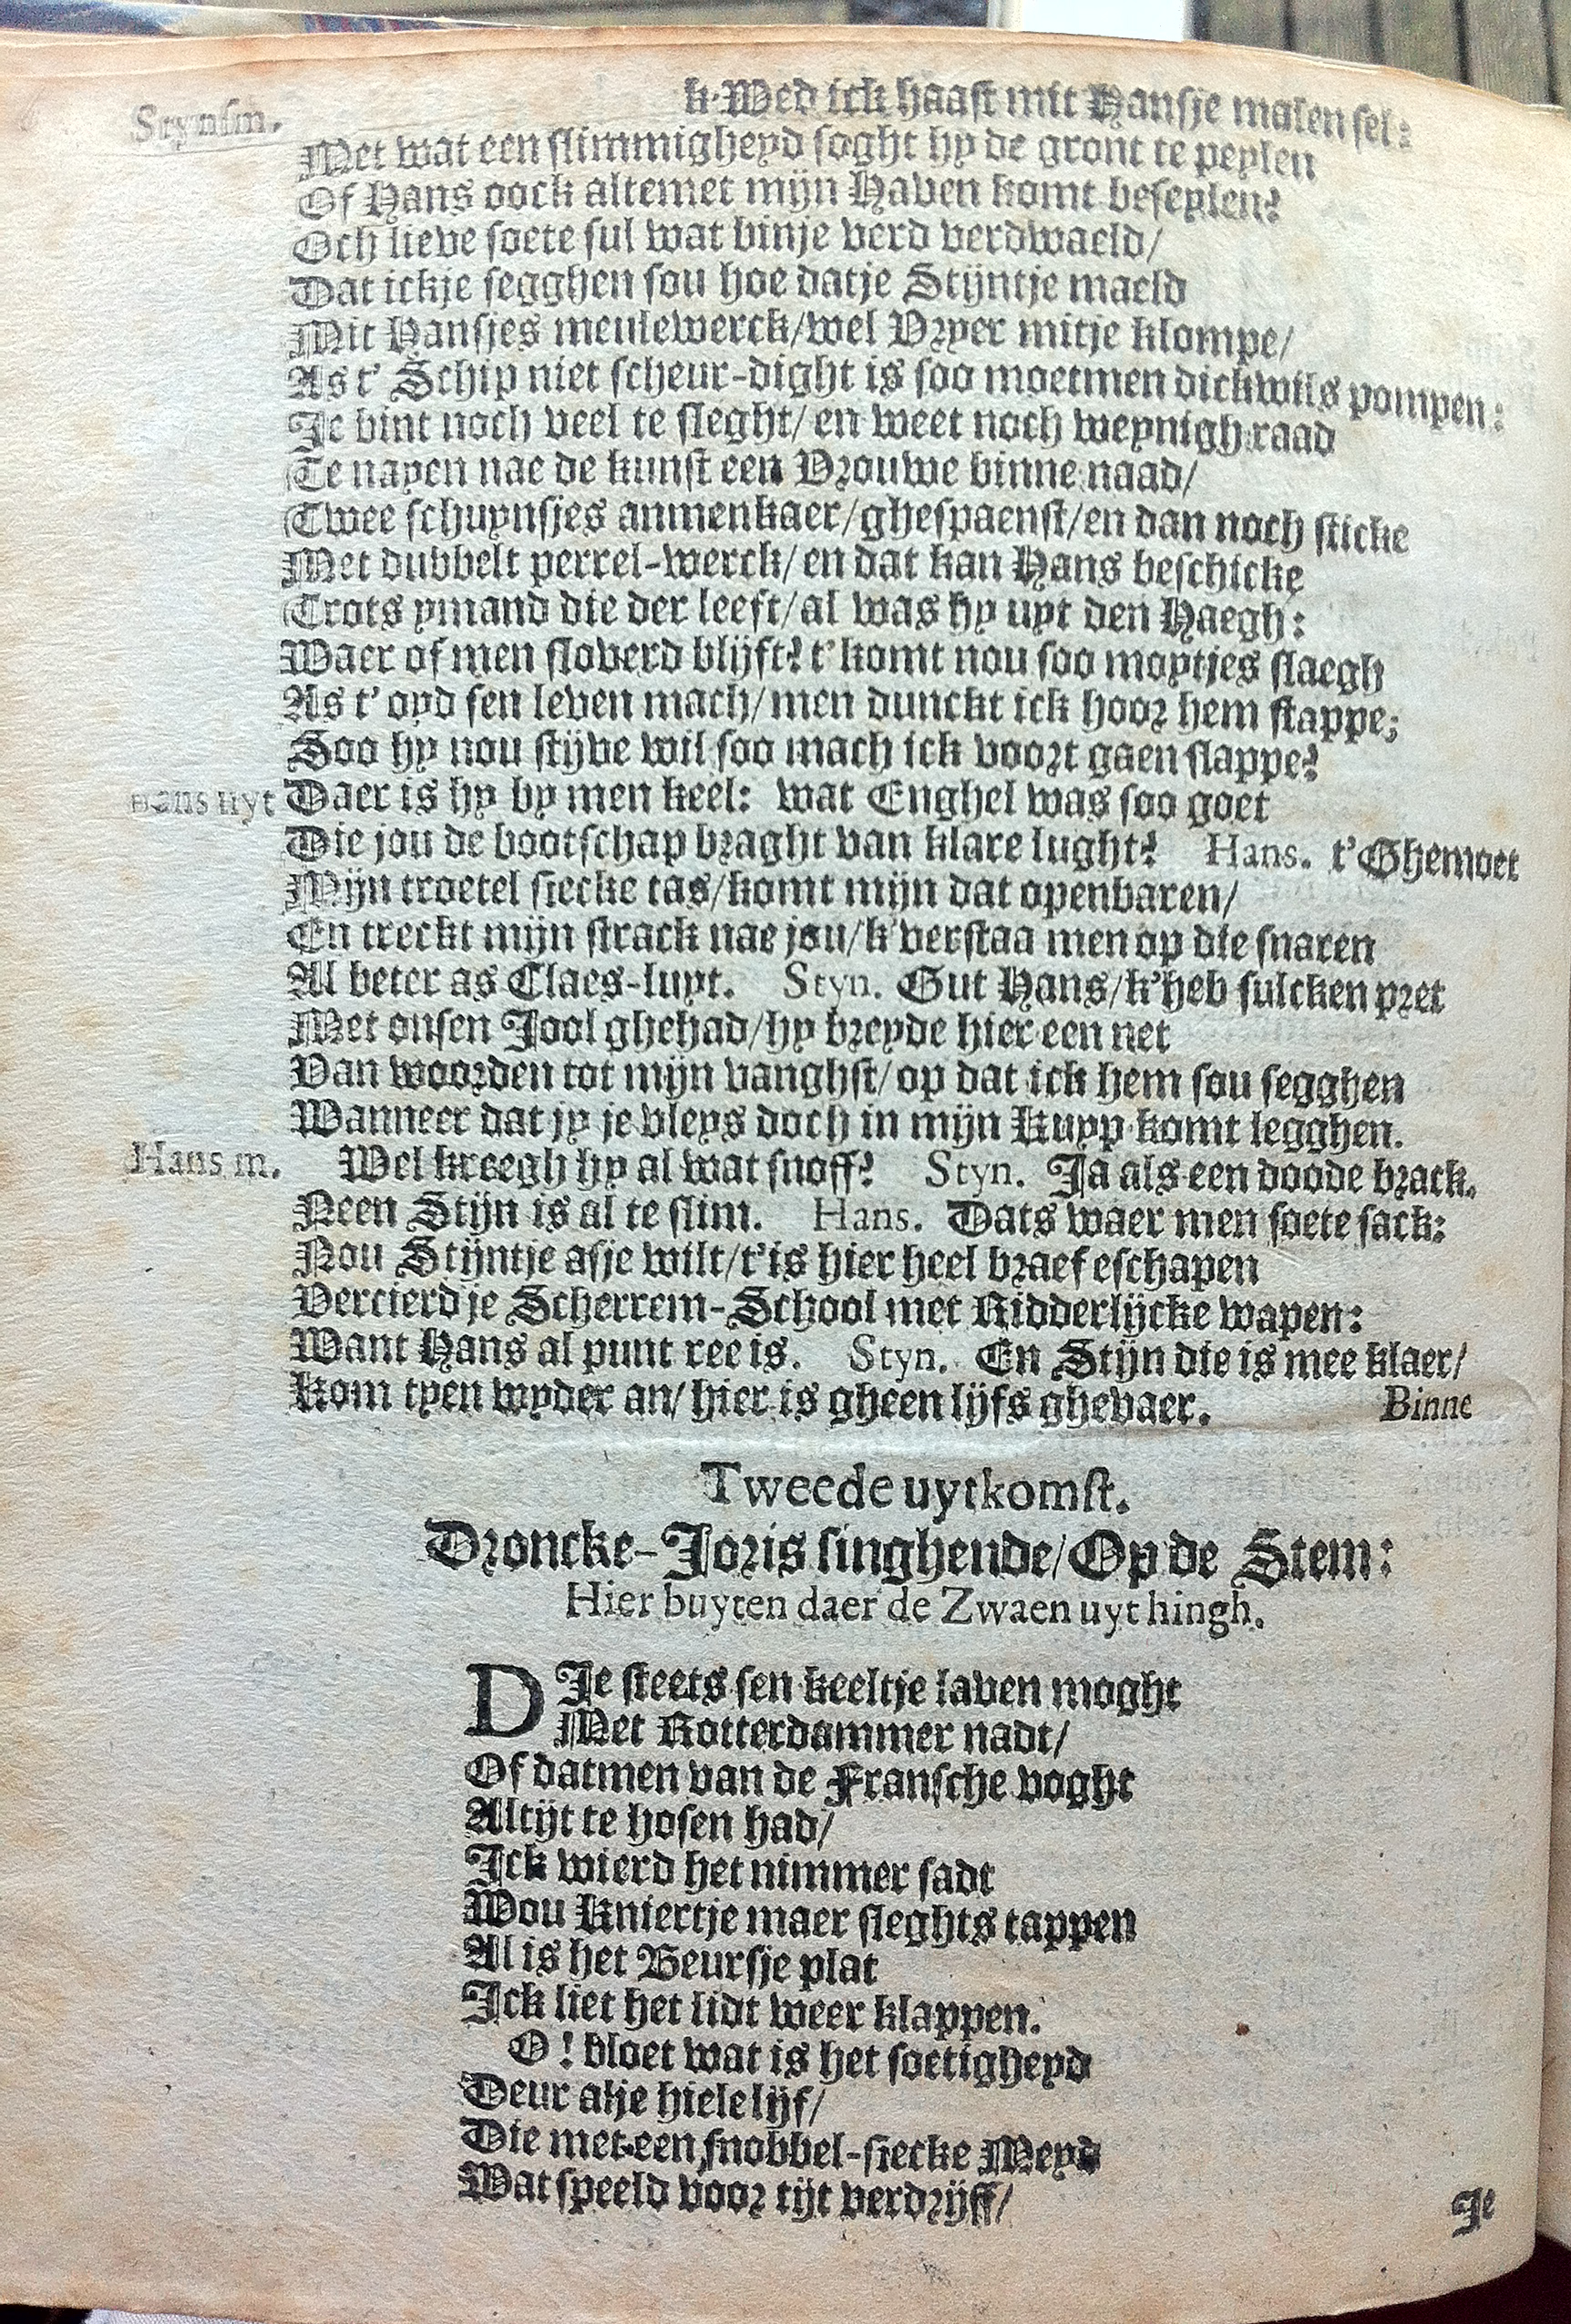 Stynsm. k'Wed ick haast mit Hansje malen sel:
Met wat een slimmigheyd soght hy de gront te peylen
Of Hans oock altemet mijn Haven komt beseylen?
Och lieve soete sul wat binje verd verdwaeld/
Dat ickje segghen sou hoe datje Stijntje maeld
Mit Hansjes meulewerck/wel Vryer mitje klompe/
As t' Schip niet scheur-dight is soo moetmen dickwils pompen:
Je bint noch veel te sleght/ en weet noch weynigh raad
Te nayen nae de kunst een Vrouwe binne naad/
Twee schuynsjes anmenkaer/ghespaenst/en dan noch sticke
Met dubbelt perrel-werck/ en dat kan Hans beschicke
Trots ymand die der leeft/al was hy uyt den Haegh:
Waer of men sloverd blijft? t'komt nou soo moytjes slaegh
As t' oyd sen leven mach/men dunckt ick hoor hem stappe;
Soo hy nou stijve wil soo mach ick voort gaen slappe?
Hans uyt Daer is hy by men keel: wat Enghel was soo goet
Die jou de bootschap braght van klare lught? Hans. t'Ghemoet
Mijn troetel siecke tas/komt mijn dat openbaren/
En treckt mijn strack nae jou/k'verstaa men op die snaren
Al beter as Claes-luyt. Styn. Gut Hans/k'heb sulcken pret
Met onsen Jool ghehad/hy breyde hier een net
Van woorden tot mijn vanghst/ op dat ick hem sou segghen
Wanneer dat jy je vleys doch in mijn Kuyp komt legghen.
Hans m. Wel kreegh hy al wat snoff? Styn. Ja als een doode brack.
Neen Stijn is al te slim. Hans. Dats waer men soete sack:
Nou Stijntje asje wilt/t'is hier heel braef eschapen
Vercierd je Scherrem-School met Ridderlijcke wapen:
Want Hans al punt ree is. Styn. En Stijn die is mee klaer/
Kom tyen wyder an/ hier is gheen lijfs ghevaer. Binne
Tweede uytkomst.
Droncke-Joris singhende/Op de Stem:
Hier buyten daer de Zwaen uyt hingh.
DIe steets sen keeltje laven moght
Met Rotterdammer nadt/
Of datmen van de Fransche voght
Altijt te hosen had/
Ick wierd het nimmer sadt
Wou Kniertje maer sleghts tappen
Al is het Beursje plat
Ick liet het lidt weer klappen.
O! bloet wat is het soetigheyd
Deur alje hiele lijf/
Die met een snobbel-siecke Meyd
Wat speeld voor tijt verdrijff/
Je